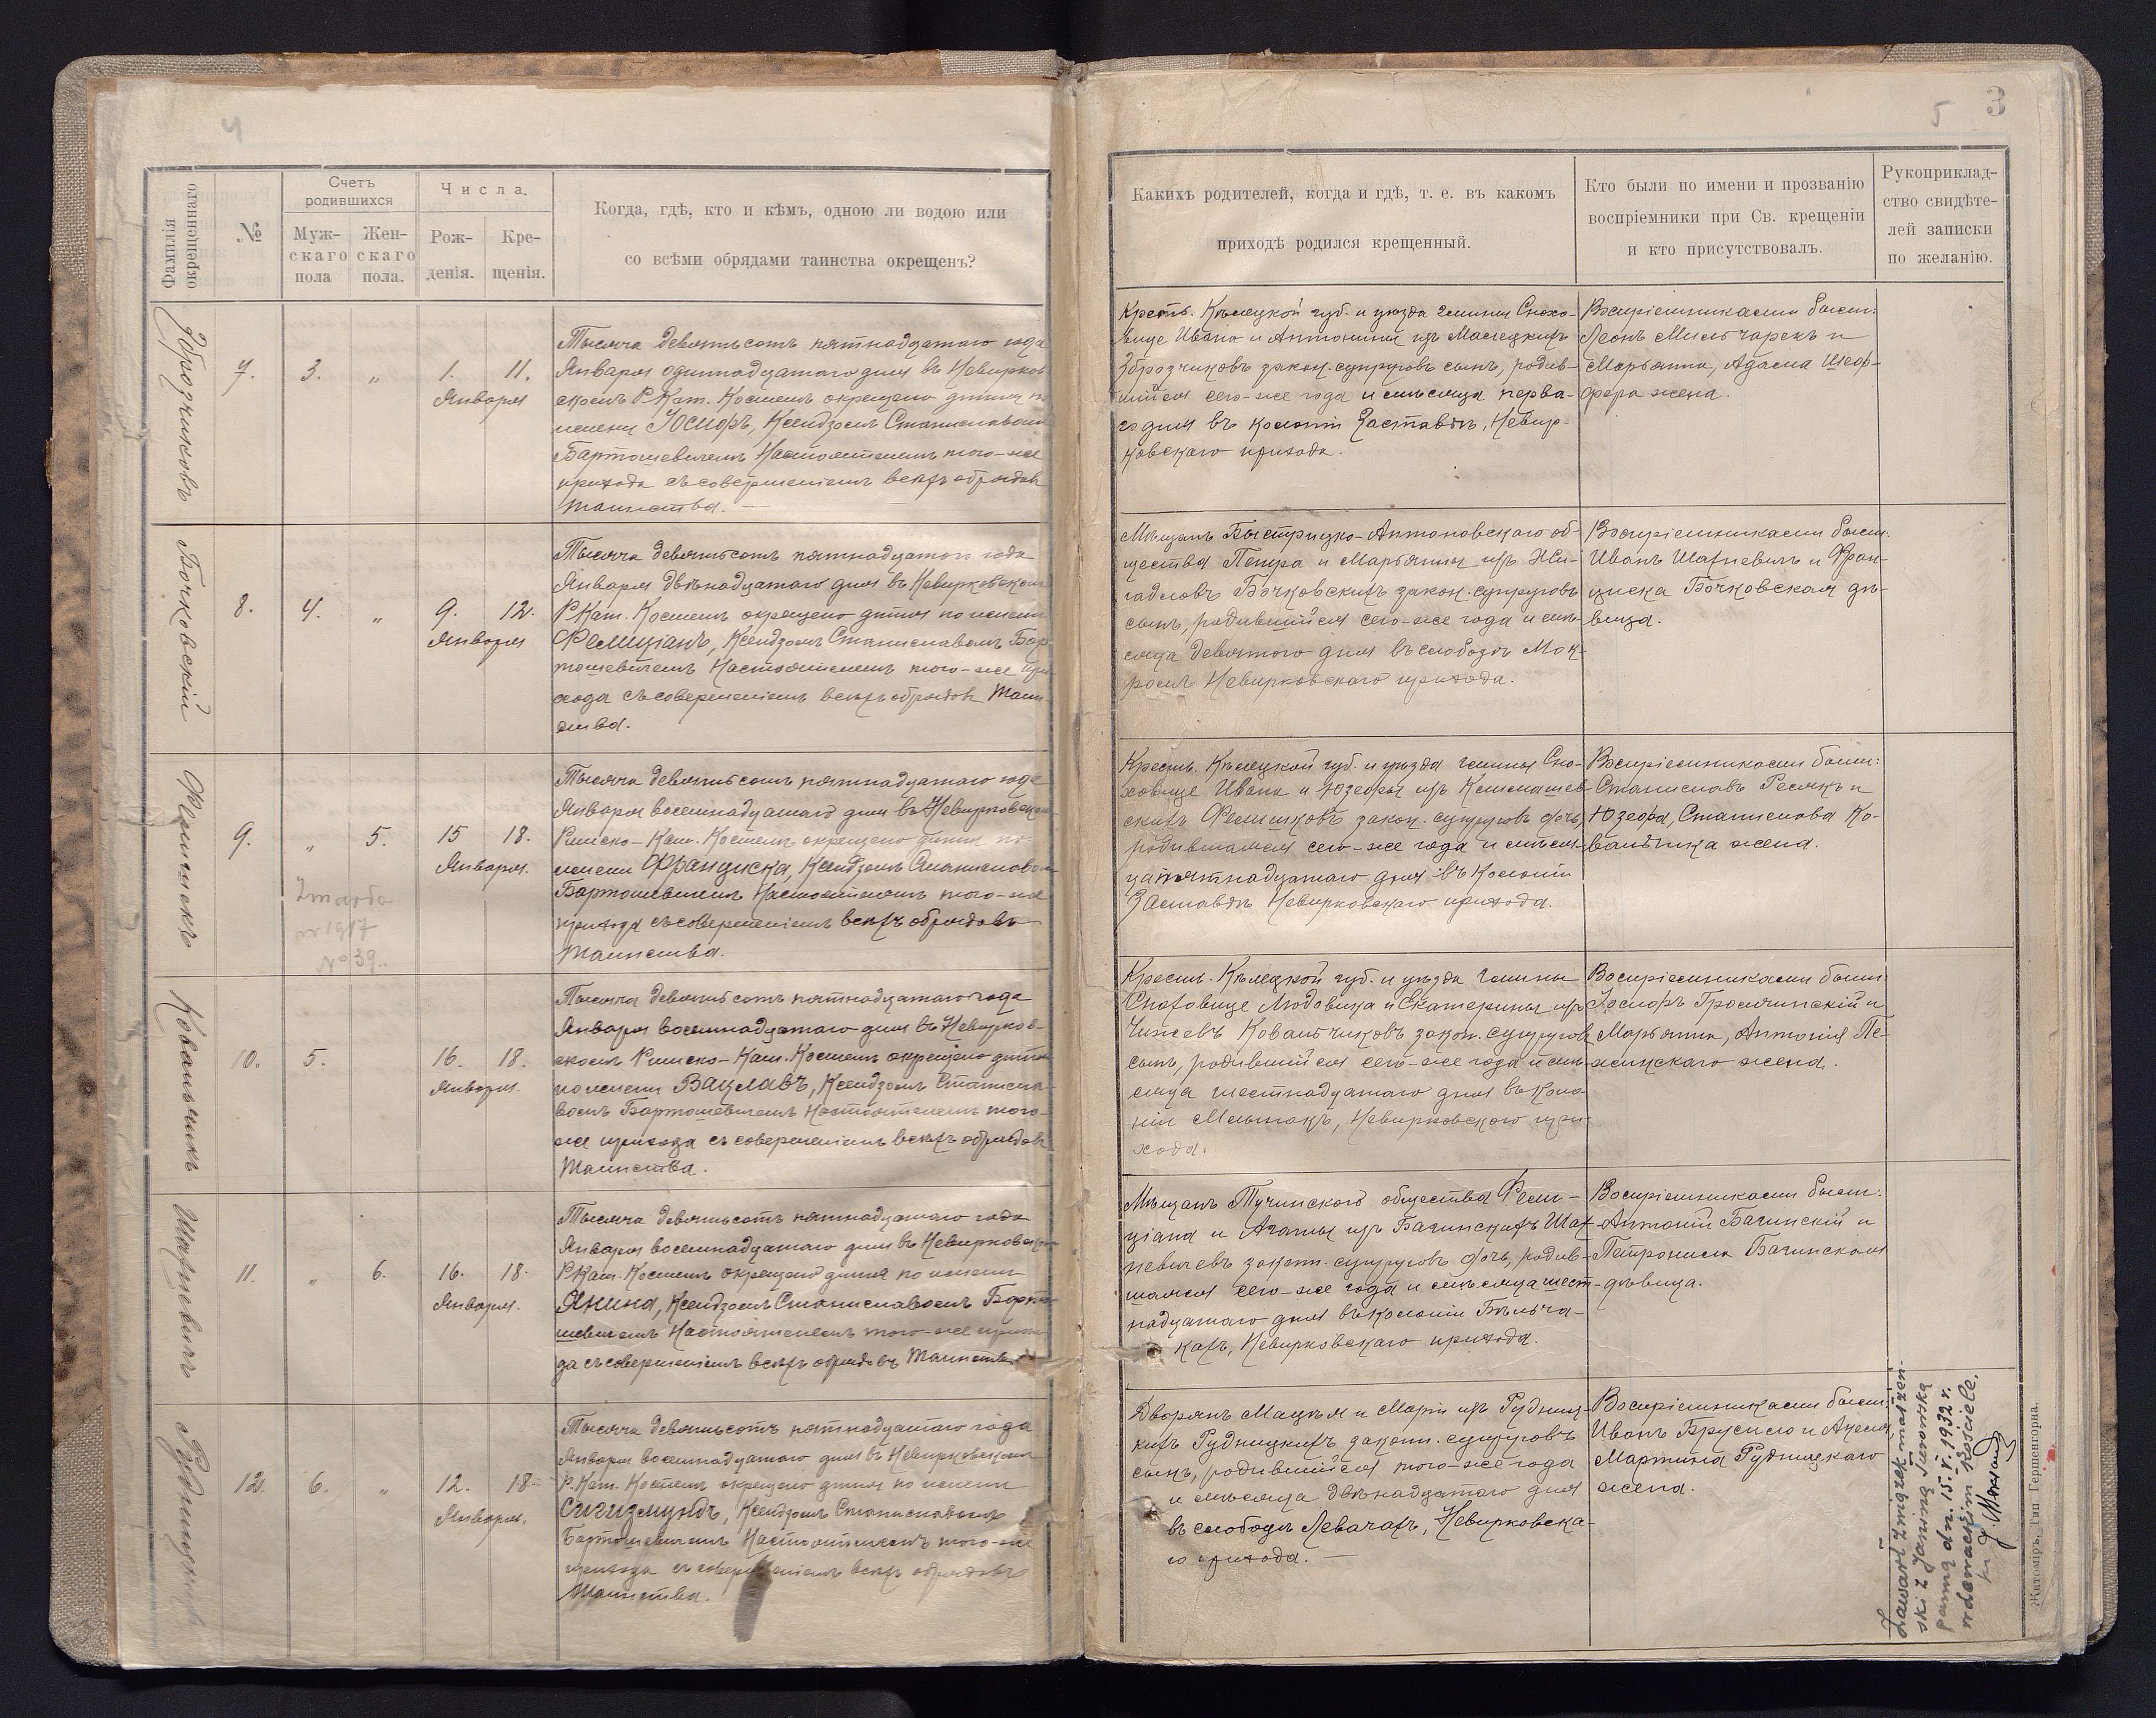 4
Фамилія окрещеннаго
№
Счетъ родившихся
Муж-
скаго
пола
Жен-
скаго
пола.
Числа.
Рож-
денія.
Кре-
щенія.
Когда, гдѣ, кто и кѣмъ, одною ли водою или
со всѣми обрядами таинства окрещенъ?
7.
3.
"
1.
11.
Января
Тысяча девятьсотъ пятнадцатаго года
Января одиннадцатаго дня въ Невирков
скомъ Р. Кат. Костелѣ окрещено дитя
имени Юсифъ, Ксендзомъ Станиславомъ
Бартошевичемъ Настоятелемъ того-же
прихода съ совершеніемъ всѣхъ обрядовъ
таинства.
Бочковскій
8.
4.
"
9.
12.
Января
Тысяча девятьсотъ пятнадцатаго года
Января двѣнадцатаго дня въ Невирковскомъ
Р. Кат. Костелѣ окрещено дитя по имени
Фелиціанъ, Ксендзомъ Станиславомъ Бар
тошевичемъ Настоятелемъ того-же при
хода съ совершеніемъ всѣхъ обрядовъ Таин
ства.
9.
"
5.
15
18.
Января.
2 марта
1917
№ 39.
Тысяча девятьсотъ пятнадцатаго года
Января восемнадцатаго дня въ Невирковском
Римско-Кат. Костелѣ окрещено дитя по
имени Францишка, Ксендзомъ Станиславом
Бартошевичемъ Настоятелемъ того-же
прихода съ совершеніемъ всѣхъ обрядовъ
Таинства.
Ковальчикъ
10.
5.
16.
18.
Января.
Тысяча девятьсотъ пятнадцатаго года
Января восемнадцатаго дня въ Невирков-
скомъ Римско-Кат. Костелѣ окрещено дитя
по имени Вацлавъ, Ксендзомъ Станисла-
вомъ Бартошевичемъ Настоятелемъ того-
же прихода съ совершеніемъ всѣхъ обрядовъ
Таинства.
Шахневичъ
11.
"
6.
16.
18.
Января.
Тысяча девятьсотъ пятнадцатаго года
Января восемнадцатаго дня въ Невирковском
Р. Кат. Костелѣ окрещено дитя по имени
Янина, Ксендзомъ Станиславомъ Барто
шевичемъ Настоятелемъ того-же прихо
да съ совершеніемъ всѣхъ обрядовъ Таинства
Рудницкій
12.
6.
"
12.
18.
Января.
Тысяча девятьсотъ пятнадцатаго года
Января восемнадцатаго дня въ Невирковскомъ
Р. Кат. Костелѣ окрещено дитя по имени
Сигизмундъ, Ксендзомъ Станиславомъ
Бартошевичемъ Настоятелемъ того-же
прихода съ совершеніемъ всѣхъ обрядовъ
Таинства.
5
3
Какихъ родителей, когда и гдѣ, т. е. въ какомъ
приходѣ родился крещенный.
Кто были по имени и прозванію
воспріемники при Св. крещеніи
и кто присутствовалъ.
Рукоприклад-
ство свидѣте-
лей записки
по желанію.
Крест. Кѣлецкой губ. и уѣзда гмины Снохо-
вице Ивана и Антонины изъ Малецкихъ
Зброзчиковъ закон. супруговъ сынъ, родив-
шійся сего-же года и мѣсяца перва-
го дня въ колоніи Заставѣ, Невир-
ковскаго прихода.
Воспріемниками были:
Леонъ Мильчарекъ и
Марьянна, Адама Шеф-
фера жена.
Мѣщанъ Быстрицко-Антоновскаго об-
щества Петра и Марьянны изъ Жи-
гадловъ Бочковскихъ закон. супруговъ
сынъ, родившійся сего-же года и мѣ-
сяца девятого дня въ слободѣ Мок-
ромъ Невирковскаго прихода.
Воспріемниками были:
Иванъ Шахневичъ и Фран-
циска Бочковская дѣ-
вица.
Крест. Кѣлецкой губ. и уѣзда гмины Сно-
ховице Ивана и Юзефы изъ
скихъ закон. супруговъ дочь,
родившаяся сего-же года и мѣся-
ца пятнадцатаго дня въ Колоніи
Заставѣ Невирковскаго прихода.
Воспріемниками были:
Станиславъ и
Юзефа, Станислава Ко-
вальчика жена.
Крест. Кѣлецкой губ. и уѣзда гмины
Сноховице Людовика и Екатерины изъ
Чижевъ Ковальчиковъ закон. супруговъ
сынъ, родившійся сего-же года и мѣ-
сяца шестнадцатаго дня въ Коло-
ніи Невирковскаго при-
хода.
Воспріемниками были:
Іосифъ Громчинскій и
Марьянна, Антонія
жена.
Мѣщанъ Тучинскаго общества Фели-
ціана и Агаты изъ Багинскихъ Шах-
невичевъ законн. супруговъ дочь, родив-
шаяся сего-же года и мѣсяца шест-
надцатаго дня въ колоніи Бѣльча-
кахъ, Невирковскаго прихода.
Воспріемниками были:
Антоній Багинскій и
Петронеля Багинская
дѣвица.
Дворянъ Мацѣя и Маріи изъ Рудниц-
кихъ Рудницкихъ законн. супруговъ
сынъ, родившійся того-же года
и мѣсяца двѣнадцатаго дня
въ слободѣ Левачахъ, Невирковска-
го прихода.
Воспріемниками были:
Иванъ Брусило и Анеля,
Мартина Рудницкаго
жена.
Zawarł związek małżeń-
ski z Janiną
panną dn. 15.V.1932 r.
kościele.
Житоміръ, Тип. Гершенгорна.